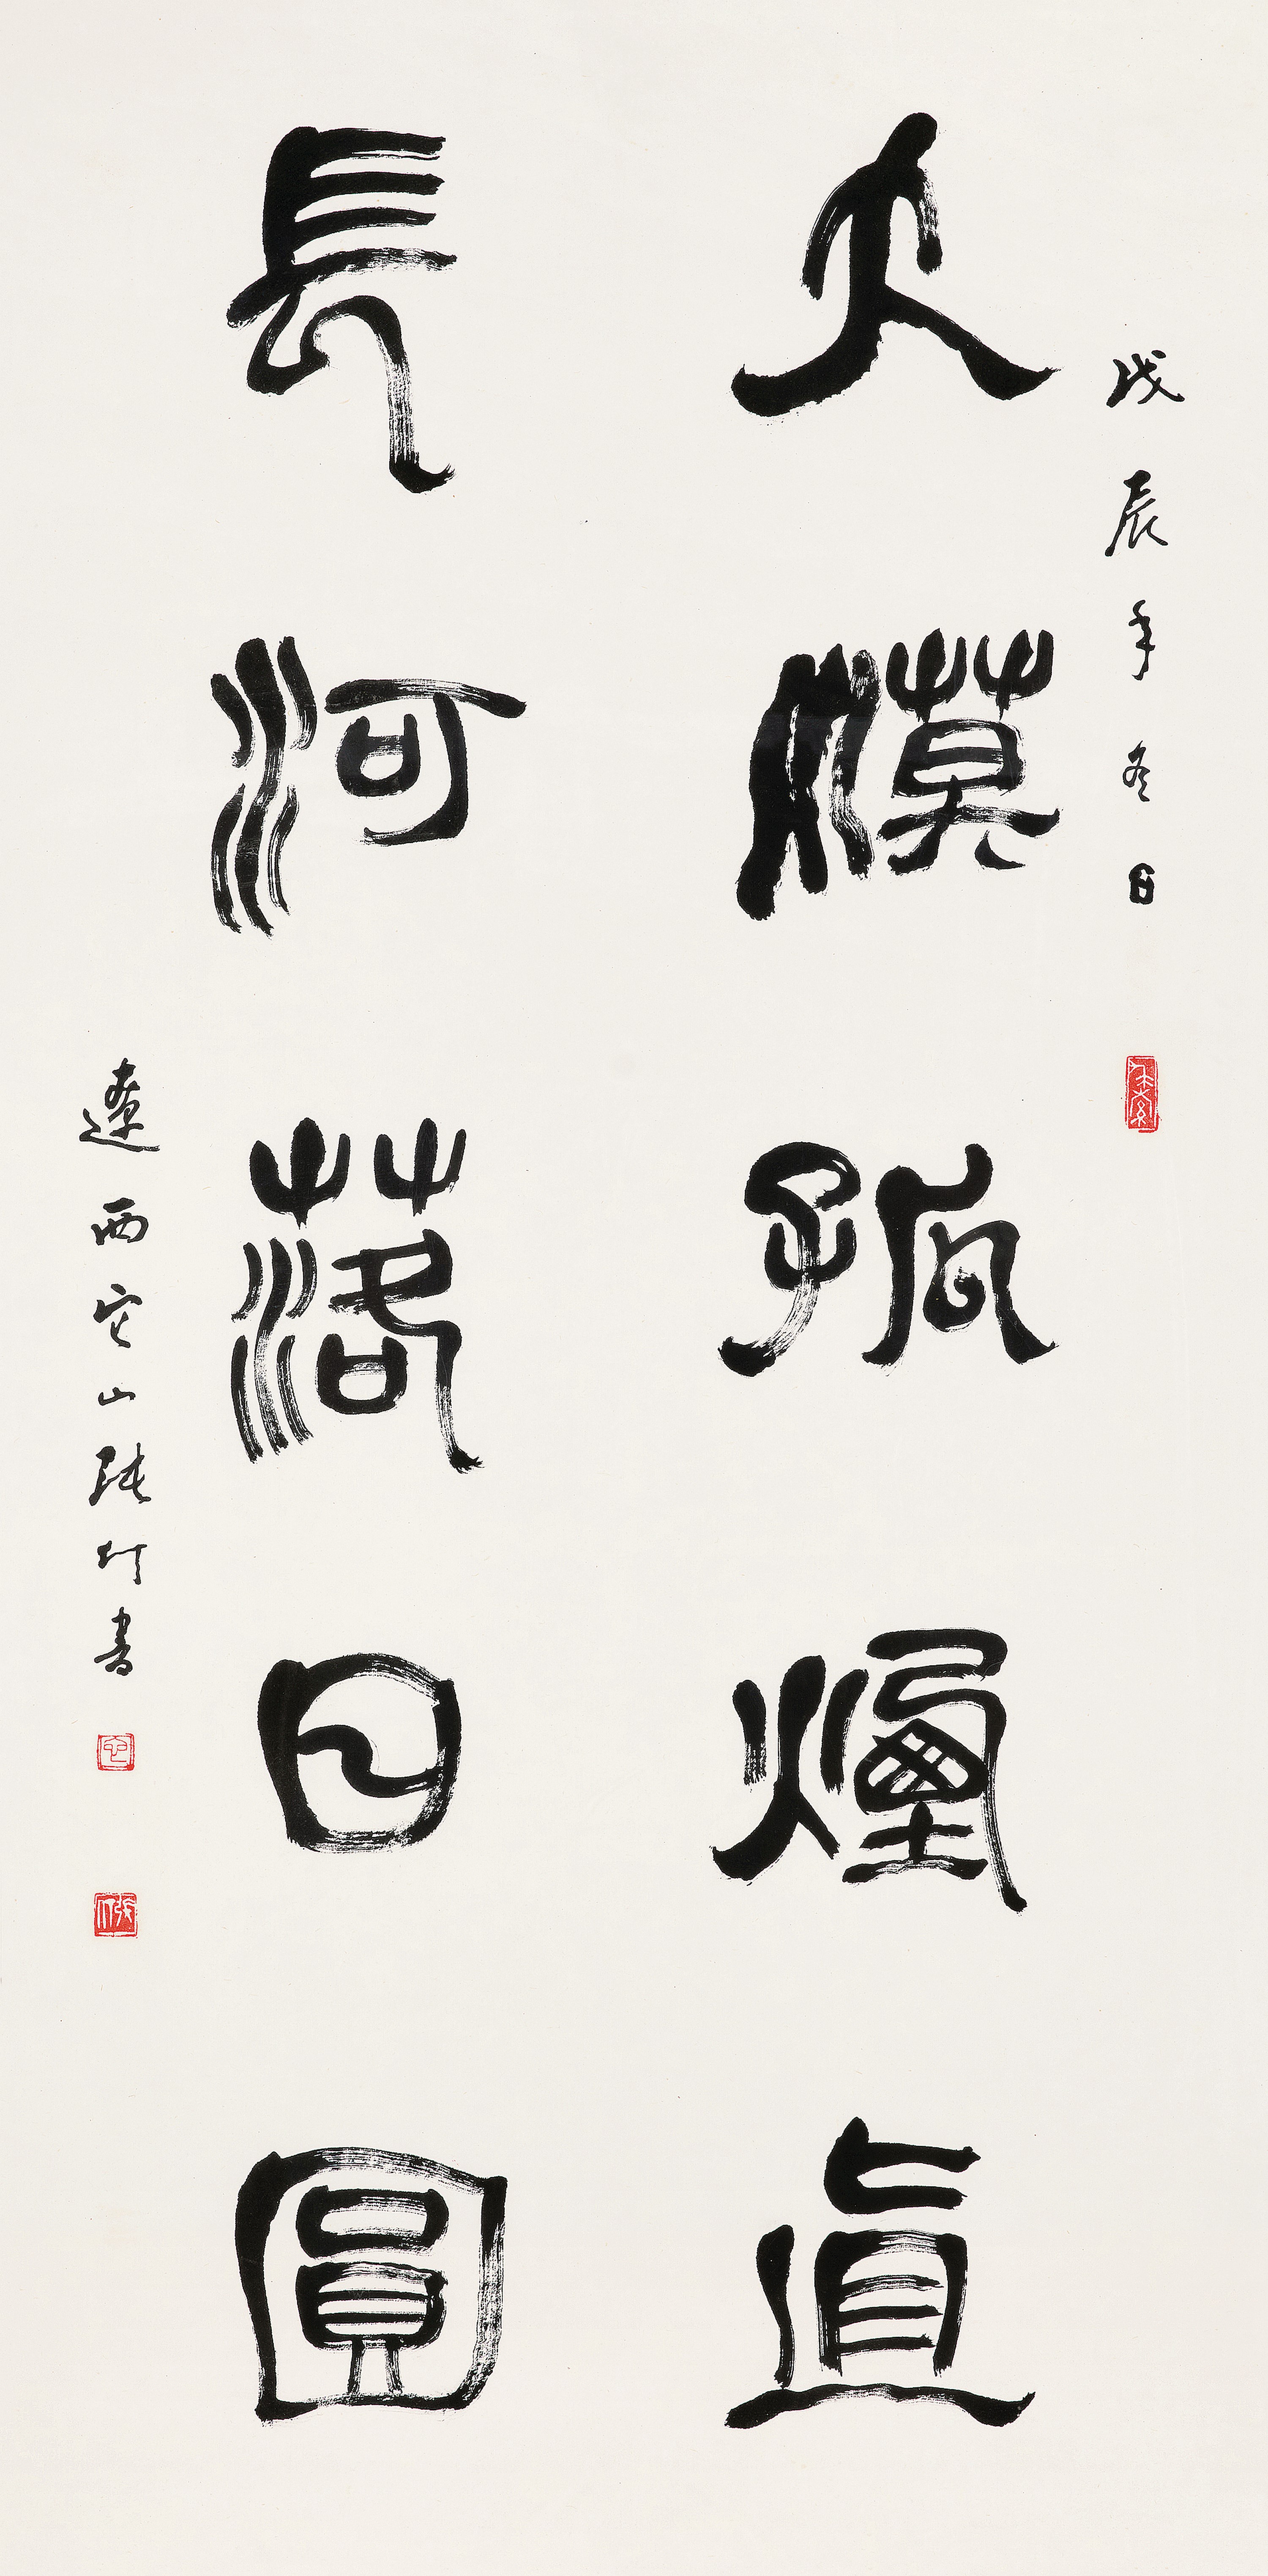 戊辰年冬日
大漠孤煙直
長河落日圓
遼西它山張仃書
它
張仃